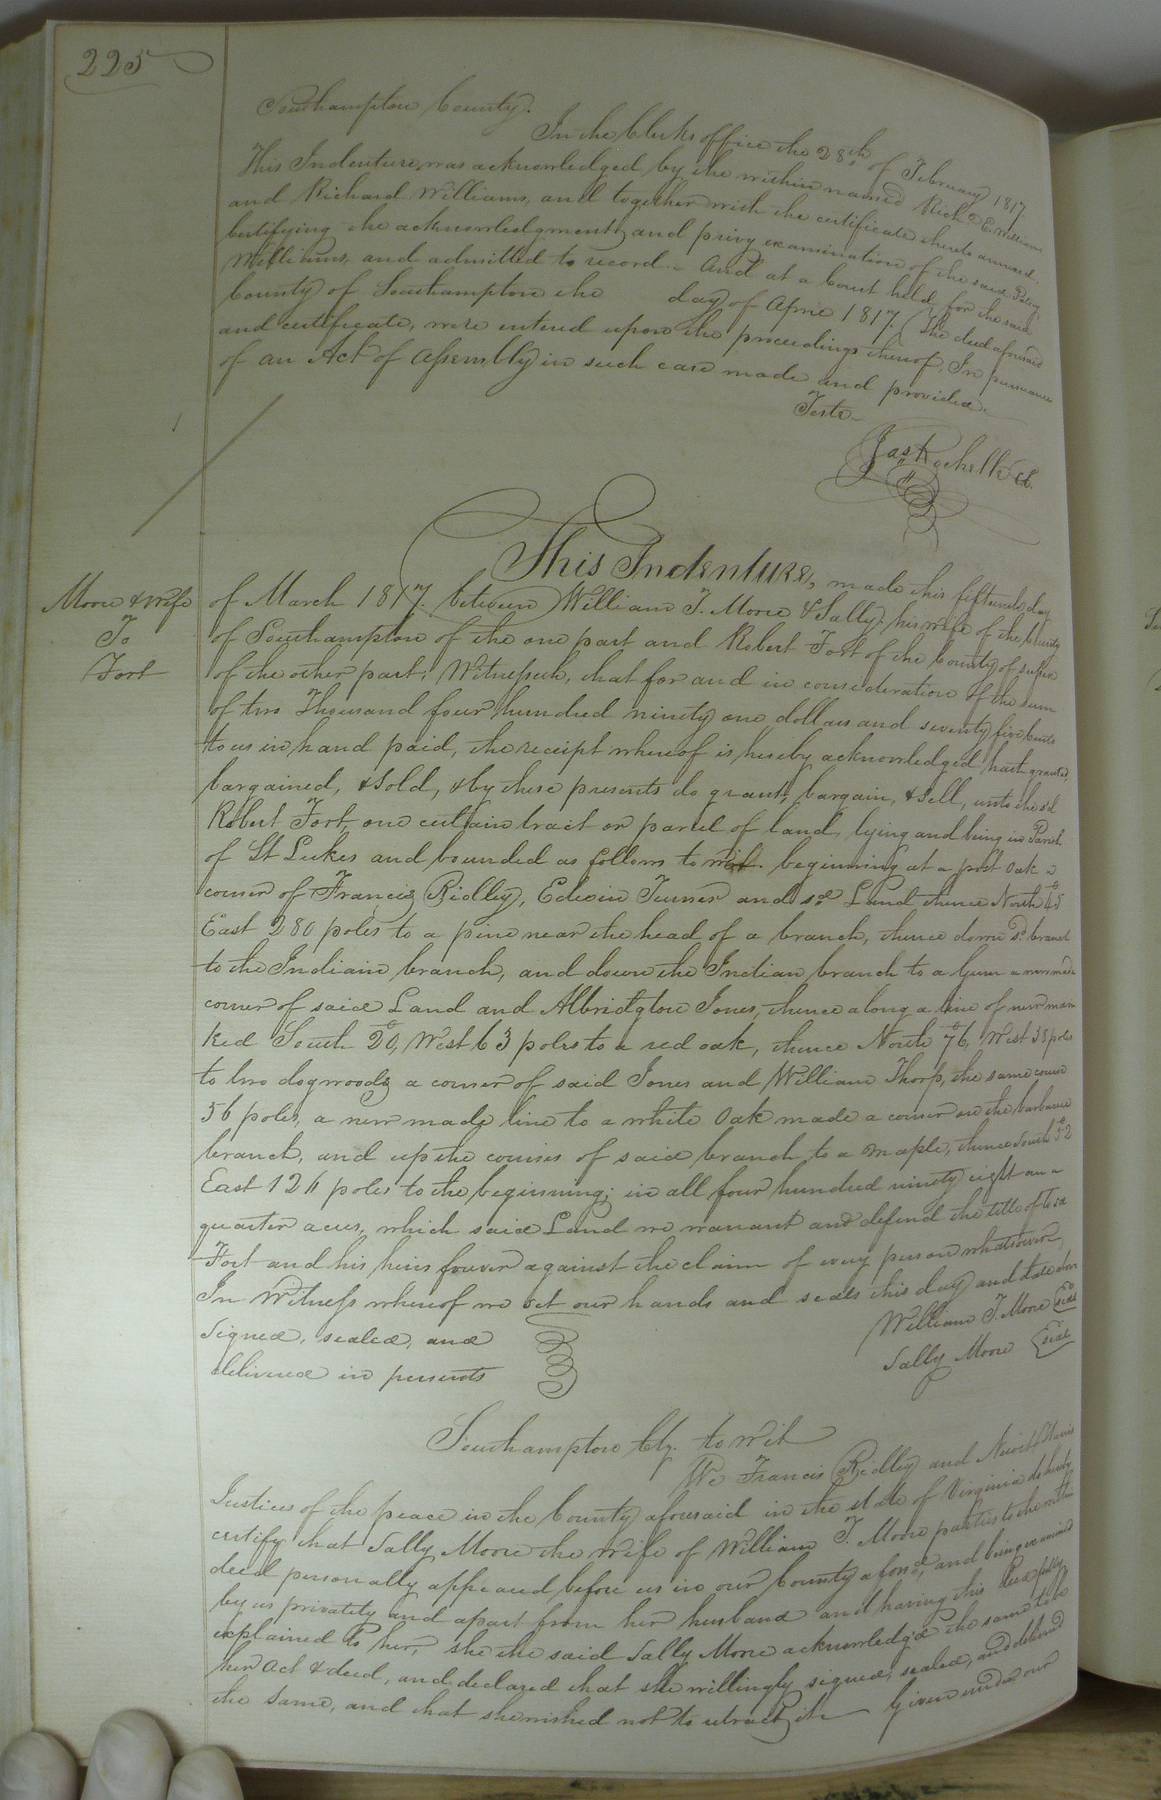 225
Southampton County.
In the Clerks office the 28th of February 1817.
This Indenture, was acknowledged by the within named Richd E. Williams
and Richard Williams, and together with the certificate thereto annexed
Certifying the acknowledgment, and privy examination of the said
Williams, and admitted to record. And at a Court held for the said
County of Southampton the day of April 1817. The deed aforesaid
and certificate, were entered upon the proceedings thereof, In pursuance
of an Act of Assembly in such case made and provided.
Teste
Jas Rochelle Cl.
This Indenture, made this fifteenth day
Moore & wife
To
Fort
of March 1817. between William T. Moore & Sally, his wife of the County
of Southampton of the one part and Robert Fort of the County of
of the other part; Witnesseth, that for and in consideration of the sum
of two Thousand four hundred ninety one dollars and seventy five Cents
to us in hand paid, the receipt whereof is hereby acknowledged hath granted,
bargained, & Sold, & by these presents do grant, bargain, & Sell, unto the sd
Robert Fort, one certain tract or parcel of land, lying and being in Parish
of St Lukes and bounded as follows to wit. beginning at a post Oak a
corner of Francis Ridley, Edwin Turner and sd Land thence North 45
East 280 poles to a pine near the head of a branch, thence down sd branch
to the Indian branch, and down the Indian branch to a Gum a new made
corner of said Land and Albridgton Jones, thence along a line of new mar
ked South 20, West 63 poles to a red oak, thence North 76, West 38 poles
to two dogwoods a corner of said Jones and William Thorp, the same course
56 poles, a new made line to a white Oak made a corner on the
branch, and up the courses of said branch to a maple, thence South 52
East 126 poles to the beginning; in all four hundred ninety eight an a
quarter acres, which said Land we warrant and defend the title of to sd
Fort and his heirs forever against the claim of every person whatsoever,
In Witness whereof we set our hands and seals this day and date
Signed, sealed, and
delivered in presents
William T. Moore Seal
Sally Moore Seal
Southampton Cty. to wit
We Francis Ridley and Newit Harris
Justices of the peace in the County aforesaid in the state of Virginia do hereby
certify that Sally Moore the wife of William T. Moore parties to the within
deed personally appeared before us in our County aforsd, and being examined
by us privately and apart from her husband and having this deed fully
explained to her, she the said Sally Moore acknowledgd the same to be
her act & deed, and declared that she willingly signed, sealed, and delivered
the same, and that she wished not to retract it. Given under our